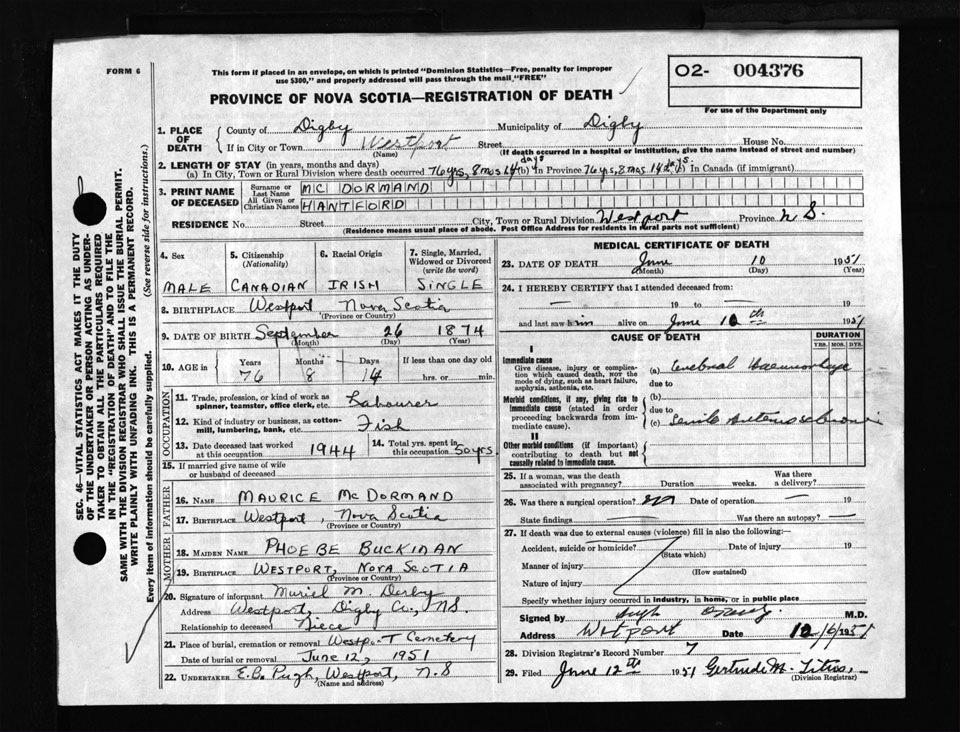 FORM 6
This form if placed in an envelope, on which is printed "Dominion Statistics—Free, penalty for improper
use $300," and properly addressed will pass through the mail "FREE"
O2- 004376
For use of the Department only
PROVINCE OF NOVA SCOTIA—REGISTRATION OF DEATH
SEC. 46—VITAL STATISTICS ACT MAKES IT THE DUTY
OF THE UNDERTAKER OR PERSON ACTING AS UNDER-
TAKER TO OBTAIN ALL THE PARTICULARS REQUIRED
IN THE "REGISTRATION OF DEATH" AND TO FILE THE
SAME WITH THE DIVISION REGISTRAR WHO SHALL ISSUE THE BURIAL PERMIT.
WRITE PLAINLY WITH UNFADING INK. THIS IS A PERMANENT RECORD.
Every item of information should be carefully supplied. (See reverse side for instructions.)
1. PLACE OF DEATH
County of Digby Municipality of Digby
If in City or Town Westport Street House No.
(Name) (If death occurred in a hospital or institution, give the name instead of street and number)
2. LENGTH OF STAY (in years, months and days)
(a) In City, Town or Rural Division where death occurred 76 yrs, 8 mos 14 days (b) In Province 76 yrs, 8 mos 14 days. (c) In Canada (if immigrant)
3. PRINT NAME OF DECEASED
Surname or Last Name MC DORMAND
All Given or Christian Names HANTFORD
RESIDENCE No. Street City, Town or Rural Division Westport Province N S.
(Residence means usual place of abode. Post Office Address for residents in rural parts not sufficient)
4. Sex
MALE
5. Citizenship (Nationality)
CANADIAN
6. Racial Origin
IRISH
7. Single, Married, Widowed or Divorced (write the word)
SINGLE
8. BIRTHPLACE Westport Nova Scotia
(Province or Country)
9. DATE OF BIRTH September 26 1874
(Month) (Day) (Year)
10. AGE in Years Months Days If less than one day old
76 8 14 hrs. or min.
OCCUPATION
11. Trade, profession, or kind of work as
spinner, teamster, office clerk, etc. Labourer
12. Kind of industry or business, as cotton-
mill, lumbering, bank, etc. Fish
13. Date deceased last worked
at this occupation 1944
14. Total yrs. spent in
this occupation 50 yrs.
15. If married give name of wife
or husband of deceased
FATHER
16. NAME MAURICE MCDORMAND
17. BIRTHPLACE Westport, Nova Scotia
(Province or Country)
MOTHER
18. MAIDEN NAME PHOEBE BUCKMAN
19. BIRTHPLACE WESTPORT, NOVA SCOTIA
(Province or Country)
20. Signature of informant Muriel M. Derby
Address Westport, Digby Co., N.S.
Relationship to deceased Niece
21. Place of burial, cremation or removal Westport Cemetery
Date of burial or removal June 12, 1951
22. UNDERTAKER E.B. Pugh, Westport, N.S
(Name and address)
MEDICAL CERTIFICATE OF DEATH
23. DATE OF DEATH June 10 1951
(Month) (Day) (Year)
24. I HEREBY CERTIFY that I attended deceased from:
— 19 to — 19
and last saw him alive on June 10th 1951
CAUSE OF DEATH
DURATION
YRS. MOS. DYS.
I
Immediate cause
Give disease, injury or complica-
tion which caused death, not the
mode of dying, such as heart failure,
asphyxia, asthenia, etc.
(a) Cerebral Haemorrhage
due to
Morbid conditions, if any, giving rise to
immediate cause (stated in order
proceeding backwards from im-
mediate cause).
(b)
due to
(c) Senile Arteriosclerosis
II
Other morbid conditions (if important)
contributing to death but not
causally related to immediate cause.
25. If a woman, was the death
associated with pregnancy? Duration weeks. Was there a delivery?
26. Was there a surgical operation? no Date of operation — 19
State findings — Was there an autopsy? —
27. If death was due to external causes (violence) fill in also the following:
Accident, suicide or homicide? Date of injury 19
(State which)
Manner of injury
(How sustained)
Nature of injury
Specify whether injury occurred in industry, in home, or in public place
Signed by Hugh M.D.
Address Westport Date 12/6/1951
28. Division Registrar's Record Number 7
29. Filed June 12th 1951 Gertrude M. Titus,
(Division Registrar)